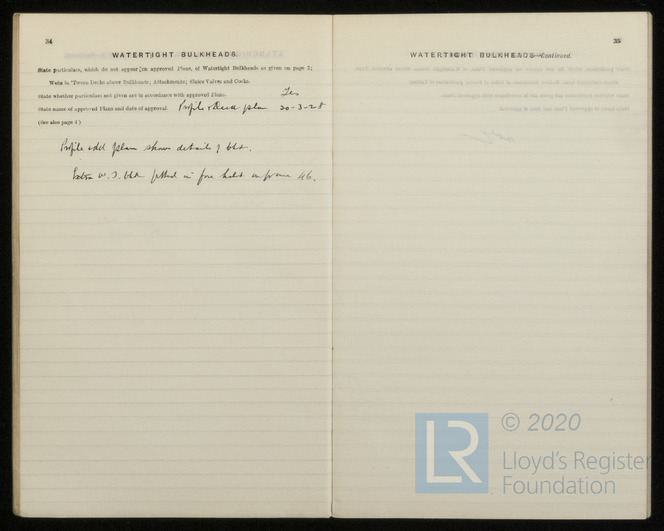 34
WATERTIGHT BULKHEADS.
State particulars, which do not appear on approved Plans, of Watertight Bulkheads as given on page 2;
Webs in 'Tween Decks above Bulkheads; Attachments; Sluice Valves and Cocks.
State whether particulars not given are in accordance with approved Plans. Yes
State name of approved Plans and date of approval. Profile & Deck plan 20-3-28
(See also page 4)
Profile and plan shows details of bhd.
Extra W.T. bhd fitted in fore hold on frame 46.
35
WATERTIGHT BULKHEADS—Continued.
LR
© 2020
Lloyd's Register
Foundation